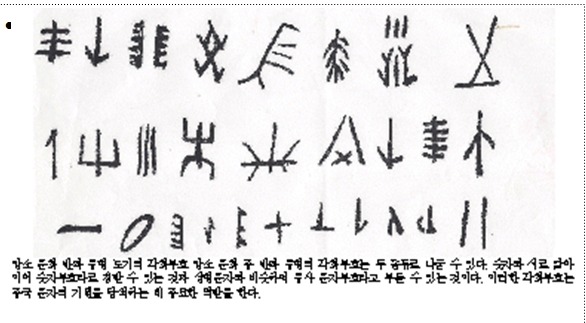 앙소 문화 반파 유형 도기의 각획부호 앙소 문화 중 반파 유형의 각획부호는 두 종류로 나눌 수 있다. 숫자와 서로 닮아
수 있는 것과 상형문자와 비슷하여 유사 문자부호라고 부를 수 있는 것이다. 이러한 각획부호는
중국 문자의 기원를 탐색하는 데 중요한 역할을 한다.